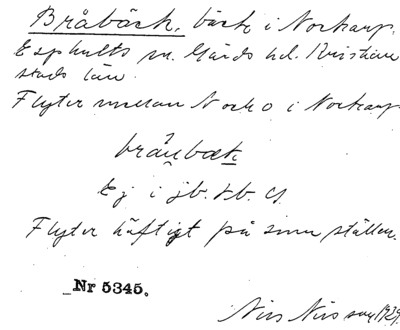 Bråbäck, bäck i Norrarp,
Esphults sn. Gärds hd. Kristian
stads län.
Flyter mellan N och O i Norrarp
bråubæk
Ej i jb.
Flyter häftigt på sina ställen.
Nr 5345.
Nils Nilsson 1929.